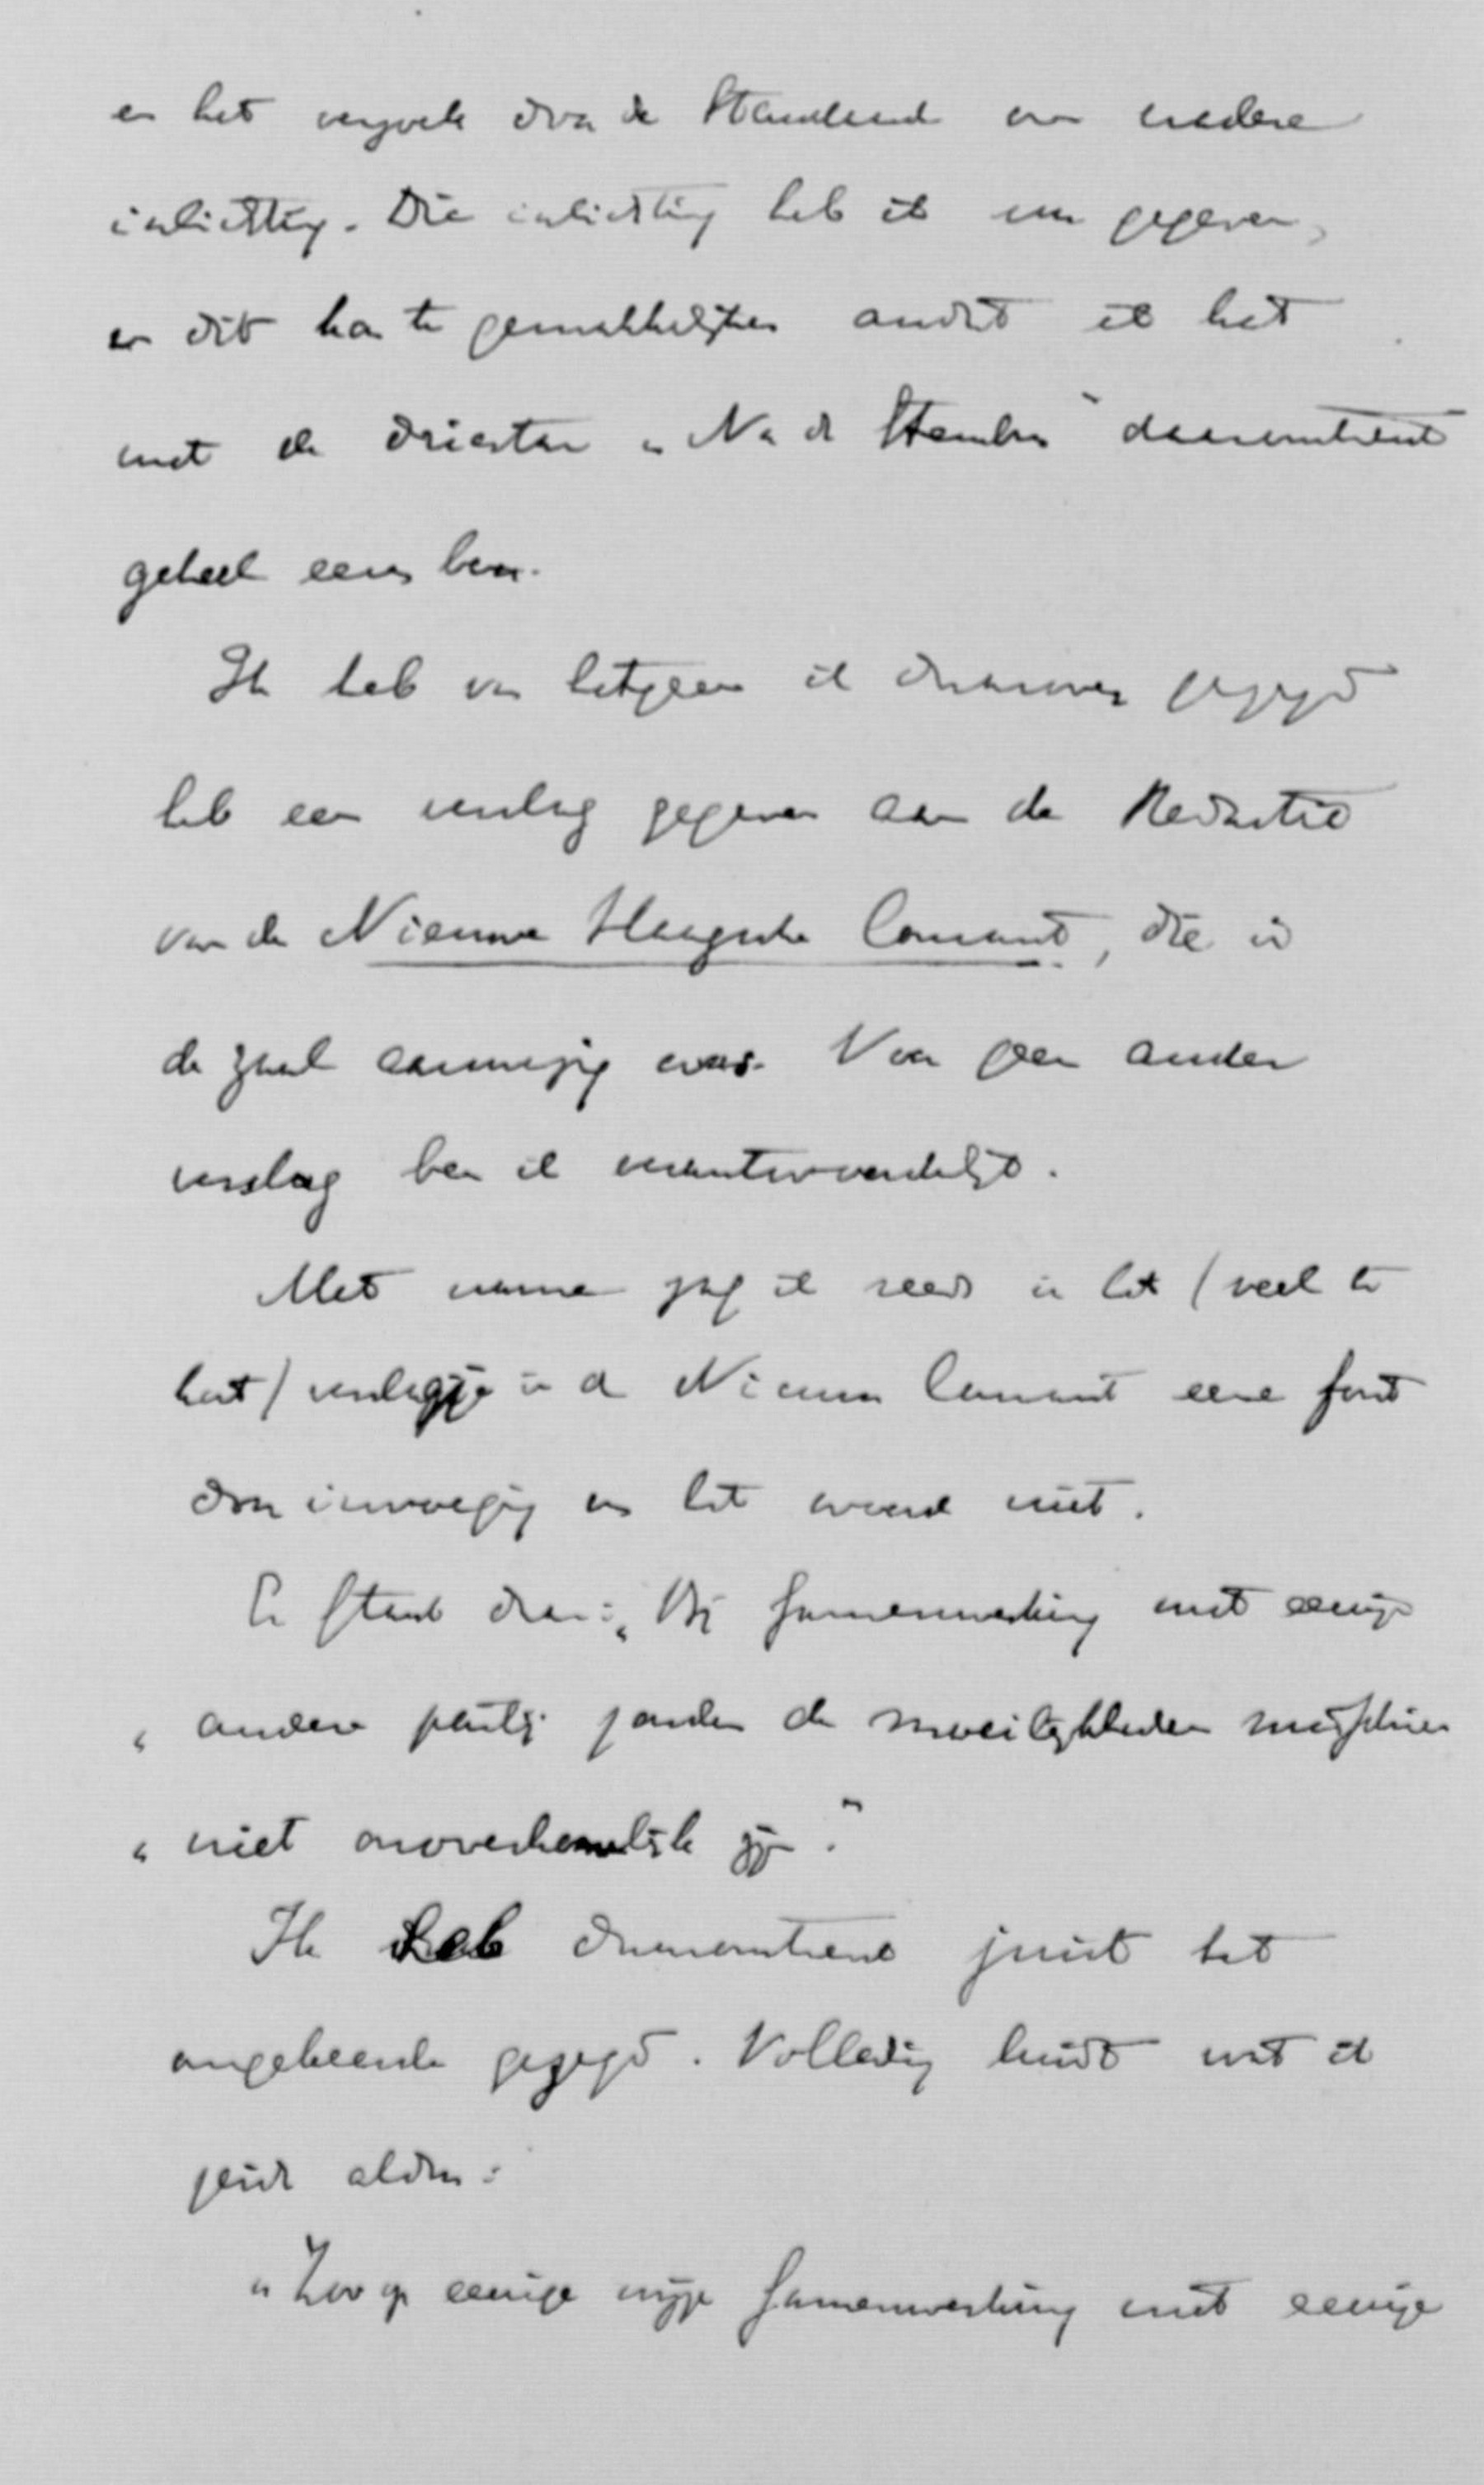 en het verzoek door de Standaard om nadere
inlichting. Die inlichting heb ik nu gegeven,
en dit kon te gemakkelijker omdat ik het
met de driestar „Na de Stembus" daaromtrent
geheel eens ben.
Ik heb van hetgeen ik daarover gezegd
heb een verslag gegeven aan de Redactie
van de Nieuwe Haagsche Courant, die in
de zaal aanwezig was. Voor geen ander
verslag ben ik verantwoordelijk.
Met name zag ik reeds in het (veel te
kort) verslagje in de Nieuwe Courant eene fout
door invoeging van het woord niet.
Er stond daar: „Bij samenwerking met eenige
„andere partij zouden de moeilijkheden misschien
„niet onoverkomelijk zijn."
Ik heb daaromtrent juist het
omgekeerde gezegd. Volledig luidt wat ik
zeide aldus:
„Zoo op eenige wijze samenwerking met eenige